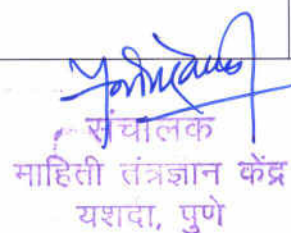 संचालक
माहिती तंत्रज्ञान केंद्र
यशदा, पुणे